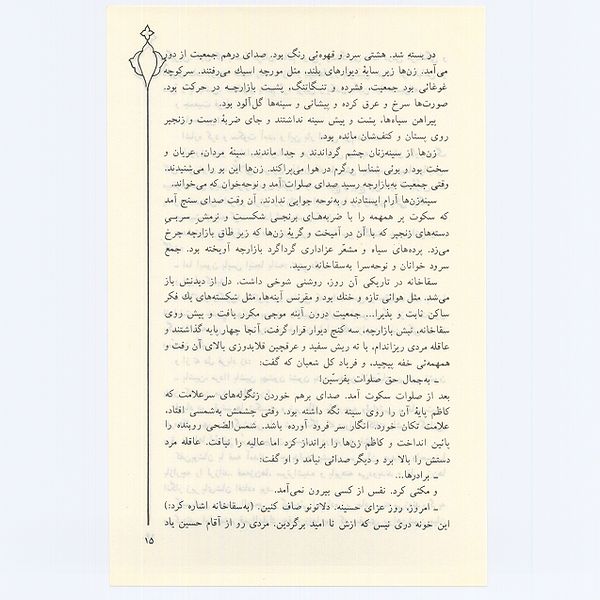 در بسته شد. هشتی سرد و قهوه‌ئی رنگ بود. صدای درهم جمعیت از دور
می‌آمد. زن‌ها زیر سایهٔ دیوارهای بلند، مثل مورچه اسبک می‌رفتند. سرکوچه
غوغائی بود جمعیت، فشرده و تنگاتنگ، پشت بازارچه در حرکت بود.
صورت‌ها سرخ و عرق کرده و پیشانی و سینه‌ها گل‌آلود بود.
پیراهن سیاه‌ها، پشت و پیش سینه نداشتند و جای ضربهٔ دست و زنجیر
روی پستان و کتف‌شان مانده بود.
زن‌ها از سینه‌زنان چشم گرداندند و جدا ماندند. سینهٔ مردان، عریان و
سخت بود و بوئی شناسا و گرم در هوا می‌پراکند. زن‌ها این بو را می‌شنیدند.
وقتی جمعیت به‌بازارچه رسید صدای صلوات آمد و نوحه‌خوان که می‌خواند،
سینه‌زن‌ها آرام ایستادند و به‌نوحه جوابی ندادند. آن وقت صدای سنج آمد
که سکوت پر همهمه را با ضربه‌های برنجی شکست و نرمش سربی
دسته‌های زنجیر که با آن در آمیخت و گریهٔ زن‌ها که زیر طاق بازارچه چرخ
می‌زد. پرده‌های سیاه و مشعّر عزاداری گرداگرد بازارچه آویخته بود. جمع
سرود خوانان و نوحه‌سرا به‌سقاخانه رسید.
سقاخانه در تاریکی آن روز، روشنی شوخی داشت. دل از دیدنش باز
می‌شد. مثل هوائی تازه و خنك بود و مقرنس آینه‌ها، مثل شکسته‌های یك فکر
ساکن ثابت و پذیرا... جمعیت درون آینه موجی مکرر یافت و پیش روی
سقاخانه، نبش بازارچه، سه کنج دیوار قرار گرفت. آنجا چهار پایه گذاشتند و
عاقله مردی ریزاندام، با ته ریش سفید و عرقچین قلابدوزی بالای آن رفت و
همهمه‌ئی خفه پیچید، و فریاد کل شعبان که گفت:
ـ به‌جمال حق صلوات بفرسّین!
بعد از صلوات سکوت آمد. صدای برهم خوردن زنگوله‌های سرعلامت که
کاظم پایهٔ آن را روی سینه نگه داشته بود. وقتی چشمش به‌شمسی افتاد،
علامت تکان خورد. انگار سر فرود آورده باشد. شمس‌الضحی روبنده را
پائین انداخت و کاظم زن‌ها را برانداز کرد اما عالیه را نیافت. عاقله مرد
دستش را بالا برد و دیگر صدائی نیامد و او گفت:
ـ برادرها...
و مکثی کرد. نفس از کسی بیرون نمی‌آمد.
ـ امروز، روز عزای حسینه. دلاتونو صاف کنین. (به‌سقاخانه اشاره کرد:)
این خونه دری نیس که ازش نا امید برگردین. مردی رو از آقام حسین یاد
۱۵